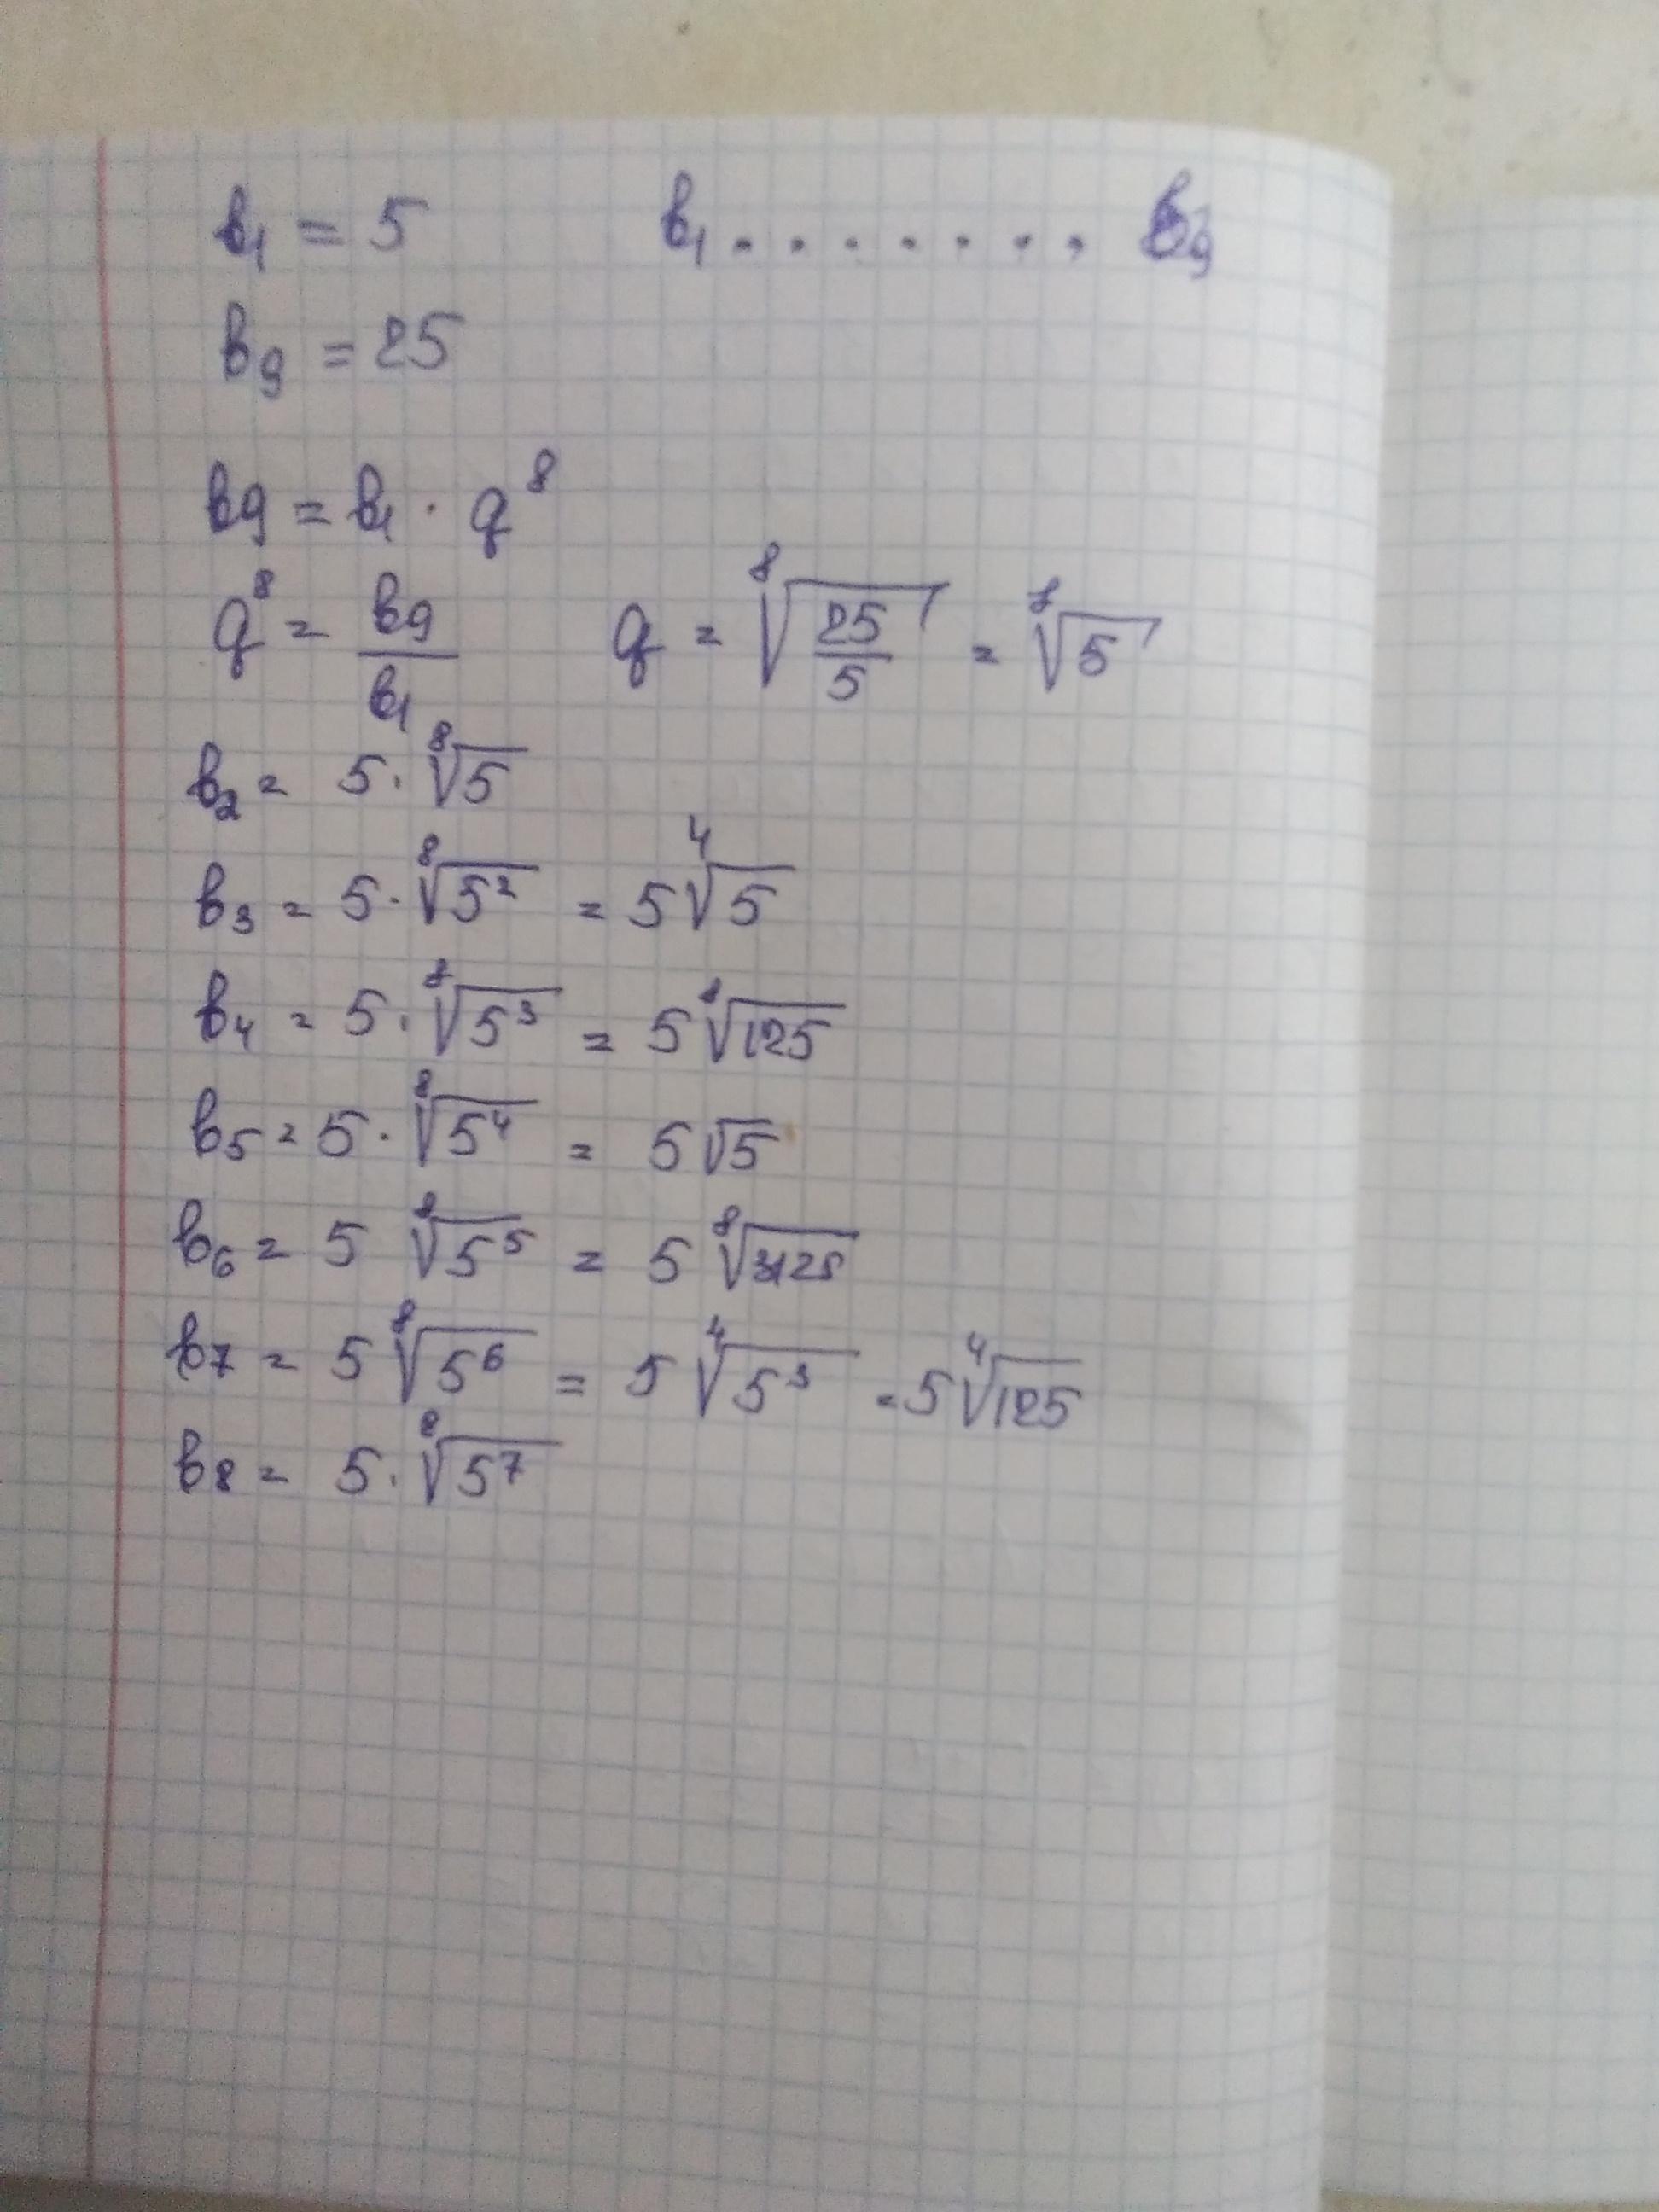 b₁ = 5 b₁ . . . . . . . b₉
b₉ = 25
b₉ = b₁ · q⁸
q⁸ = b₉/b₁ q = ⁸√(25/5) = ⁸√5
b₂ = 5 · ⁸√5
b₃ = 5 · ⁸√5² = 5 ⁴√5
b₄ = 5 · ⁸√5³ = 5 ⁸√125
b₅ = 5 · ⁸√5⁴ = 5 √5
b₆ = 5 ⁸√5⁵ = 5 ⁸√3125
b₇ = 5 ⁸√5⁶ = 5 ⁴√5³ = 5 ⁴√125
b₈ = 5 · ⁸√5⁷